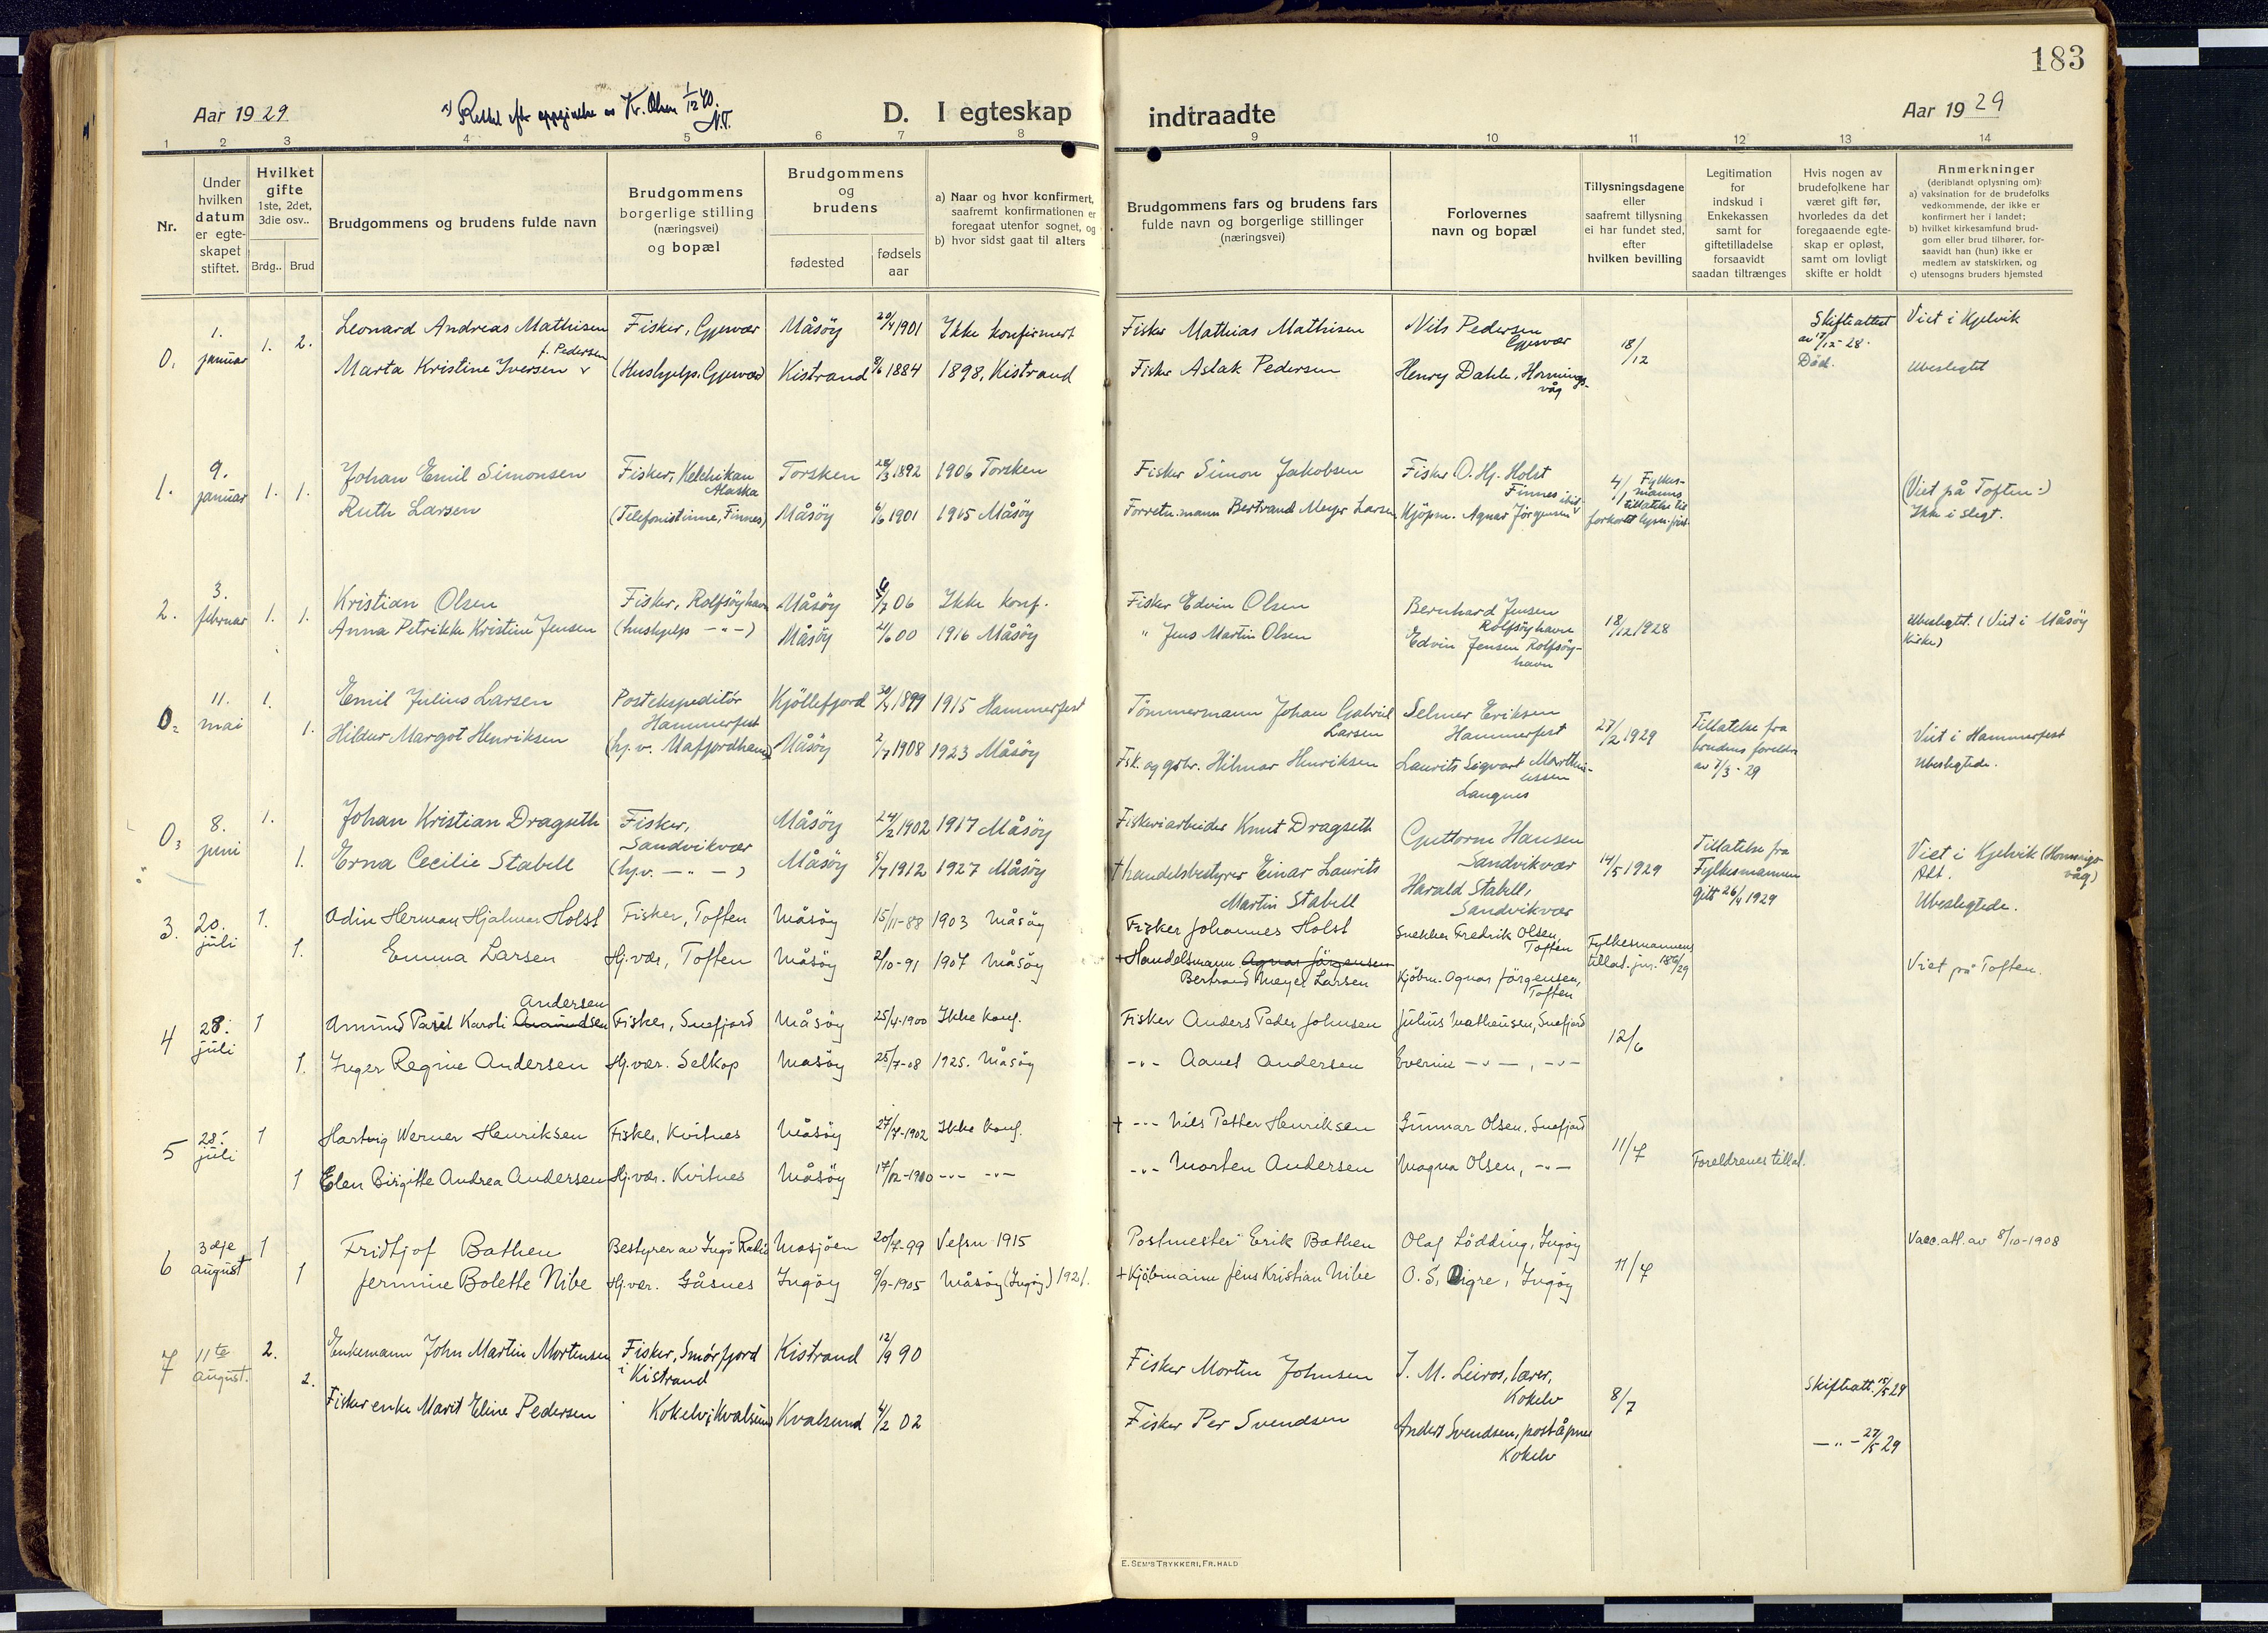 183
Aar 1929
Kr. Olsen 1/12 40.
N.T.
D. I egteskap
indtraadte
Aar 1929
1 2 3 4 5 6 7 8 9 10 11 12 13 14
Nr.
Under hvilken datum er egte-skapet stiftet.
Hvilket gifte 1ste, 2det, 3die osv..
Brdg.. Brud
Brudgommens og brudens fulde navn
Brudgommens borgerlige stilling (næringsvei) og bopæl
Brudgommens og brudens
fødested
fødsels aar
a) Naar og hvor konfirmert, saafremt konfirmationen er foregaat utenfor sognet, og
b) hvor sidst gaat til alters
Brudgommens fars og brudens fars fulde navn og borgerlige stillinger (næringsvei)
Forlovernes navn og bopæl
Tillysningsdagene eller saafremt tillysning ei har fundet sted, efter hvilken bevilling
Legitimation for indskud i Enkekassen samt for giftetilladelse forsaavidt saadan tiltrænges
Hvis nogen av brudefolkene har været gift før, hvorledes da det foregaaende egte-skap er opløst, samt om lovligt skifte er holdt
Anmerkninger
(deriblandt oplysning om):
a) vaksination for de brudefolks vedkommende, der ikke er konfirmert her i landet;
b) hvilket kirkesamfund brud-gom eller brud tilhører, for-saavidt han (hun) ikke er medlem av statskirken, og
c) utensogns bruders hjemsted
0. 1. januar 1. 2. Leonard Andreas Mathisen Fisker, Gjesvær Måsöy 20/4 1901 Ikke konfirmert Fisker Mathias Mathisen Nils Pedersen Gjesvær 18/12 Skifteattest av 17/12-28. Viet i Kjelvik
f. Pedersen
Marta Kristine Iversen (Hushjelp. Gjesvær) Kistrand 8/6 1884 1898, Kistrand Fisker Aslak Pedersen Henry Dahle, Honnings-våg Död. Ubeslegtet
1. 9. januar 1. 1. Johan Emil Simonsen Fisker, Ketchikan Alaska Torsken 28/3 1892 1906 Torsken Fisker Simon Jakobsen Fisker O. Hj. Holst Finnes 4/1 Fylkes-manns tillatelse til (Viet på Toften:)
Ruth Larsen (Telefonistinne, Finnes) Måsöy 6/6 1901 1915 Måsöy Forretn.mann Bertrand Meyer Larsen Kjöpm. Agnar Jörgensen forkortet lysn. Ikke i slegt.
2. 3. februar 1. 1. Kristian Olsen Fisker, Rolfsöyhavn Måsöy 06 Ikke konf. Fisker Edvin Olsen Bernhard Jensen Rolfsöyhavn 18/12 1928 Ubeslegtet. (Viet i Måsöy Kirke)
Anna Petrikke Kristine Jensen (hushjelp - " -) Måsöy 21/6 00 1916 Måsöy " Jens Martin Olsen Edvin Jensen Rolfsöy-havn
0. 2 11. mai 1. Emil Julius Larsen Postekspeditör Hammerfest Kjöllefjord 30/4 1899 1915 Hammerfest Tömmermann Johan Gabriel Larsen Selmer Eriksen Hammerfest 27/2 1929 Tillatelse fra brudens foreldre av 7/3-29 Viet i Hammerfest
1. Hildur Margot Henriksen (hj.v. Mafjordhamn) Måsöy 2/7 1908 1923 Måsöy Fsk. og gbr. Hilmar Henriksen Laurits Sigvart Marthin-ussen Langnes Ubeslegtede.
0. 3 8. juni 1. Johan Kristian Dragseth Fisker, Sandvikvær Måsöy 24/2 1902 1917 Måsöy Fiskeriarbeider Knut Dragseth Guttorm Hansen Sandvikvær 14/5 1929 Tillatelse fra Fylkesmannen gitt 26/4 1929 Viet i Kjelvik (Honnigsvåg) Alt.
1. Erna Cecilie Stabell (hj.v. - " -) Måsöy 5/7 1912 1927 Måsöy † handelsbestyrer Einar Laurits Martin Stabell Harald Stabell, Sandvikvær Ubeslegtede.
3. 20. juli 1. Odin Herman Hjalmar Holst Fisker, Toften Måsöy 15/11-88 1903 Måsöy Fisker Johannes Holst Snekker Fredrik Olsen, Toften Fylkesmannens tillat. jnr. 186/29
1. Emma Larsen Hj.vær, Toften Måsöy 2/10-91 1907 Måsöy + Handelsmann Agnar Jörgensen Bertrand Meyer Larsen Kjöbm. Agnar Jörgensen, Toften Viet på Toften.
4 28. juli 1 Amund Parel Karoli Amundsen Andersen Fisker, Snefjord Måsöy 25/4-1900 Ikke konf. Fisker Anders Peder Johnsen Julius Matheusen, Snefjord 12/6
1. Inger Regine Andersen Hj.vær. Selkop Måsöy 25/7-08 1925. Måsöy - " - Aanet Andersen Everine - " - , - " -
5 28. juli 1 Hartvig Werner Henriksen Fisker, Kvitnes Måsöy 27/7-1902 Ikke konf. + - " - Nils Petter Henriksen Gunnar Olsen, Snefjord 11/7 Foreldrenes tillat.
1 Elen Birgitte Andrea Andersen Hj.vær. Kvitnes Måsöy 17/12-1910 - " - - " - - " - Morten Andersen Magna Olsen, - " -
6 3dje august 1 Fridtjof Bathen Bestyrer av Ingö Radio Mosjöen 20/7-99 Vefsn 1915 Postmester Erik Bathen Olaf Lödding, Ingöy 11/7 Vacc.att. av 8/10-1908
1 Jermine Bolette Nibe Hj.vær. Gåsnes Ingöy 9/9-1905 Måsöy (Ingöy) 1921. + Kjöbmann Jens Kristian Nibe O. S. Digre, Ingöy
7 11te august. 2. Enkemann John Martin Mortensen Fisker, Smörfjord i Kistrand Kistrand 12/9 90 Fisker Morten Johnsen J. M. Leiros, lærer, Kokelv 8/7 Skifteatt. 15/5 29
2. Fisker enke Marit Eline Pedersen Kokelv, Kvalsund Kvalsund 4/2 02 Fisker Per Svendsen Anders Svendsen, poståpner Kokelv - " - 27/5 29
E. SEM'S TRYKKERI, FR. HALD